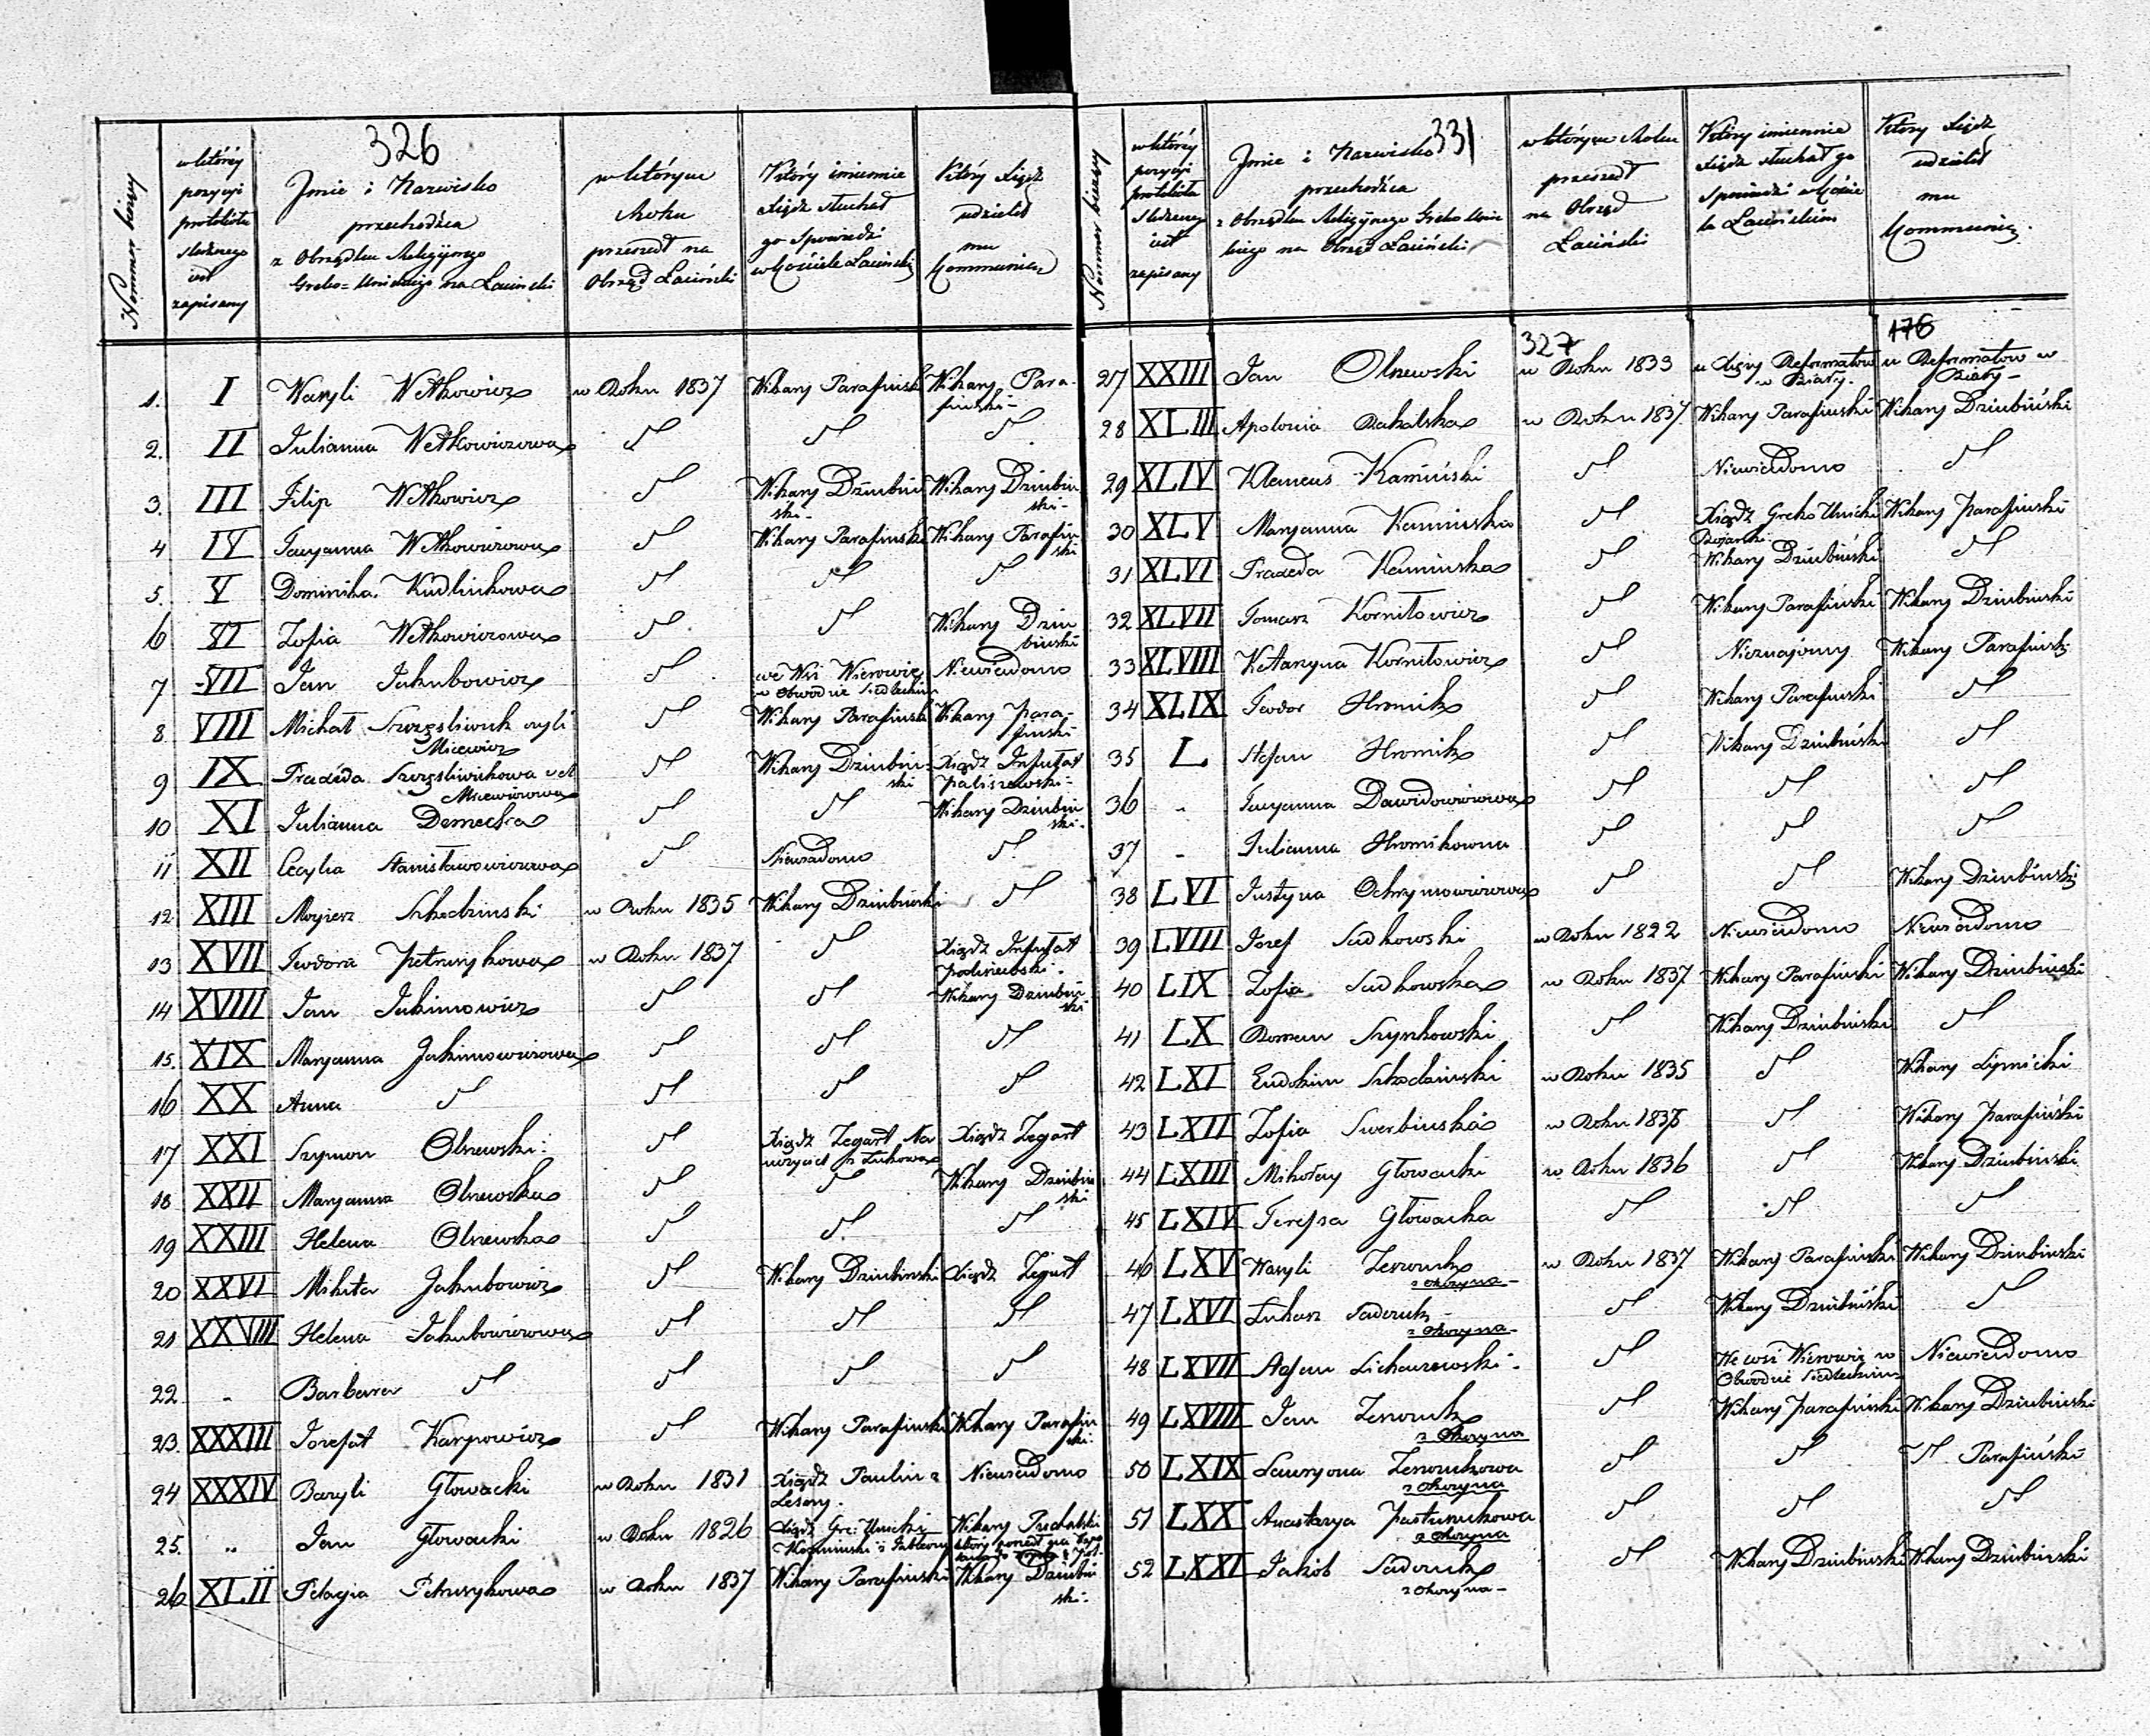 326
Nomer bieżący
w którey
pozycyi
protokółu
śledczego
jest
zapisany
Jmie i Nazwisko
przechodźca
z Obrządku Religijnego
Greko=Unickiego na Łaciński
w którym
Roku
przeszedł na
Obrząd Łaciński
Który imiennie
Xiądz słuchał
go Spowiedzi
w Kościele Łacińskiem
Który Xiądz
udzielił
mu
Kommunią
1. I Wasyli Witkowicz w Roku 1837 Wikary Parafiński Wikary Para-
fiński-
2. II Julianna Witkowiczowa N N N
3. III Filip Witkowicz N Wikary Dziubiń Wikary Dziubiń
ski- ski-
4 IV Tacyanna Witkowiczowa N Wikary Parafiński Wikary Parafiń
ski
5. V Dominika Kudlukowa N N N
6 VI Zofia Witkowiczowa N N Wikary Dziu
biński
7 VII Jan Jakubowicz N we Wsi Wierowie Niewiadomo
w Obwodzie Siedleckim
8 VIII Michał Szczęśliwuk czyli N Wikary Parafiński Wikary Para-
Micewicz fiński
9 IX Praxeda Szczęśliwukowa vel N Wikary Dziubiń- Xiądz Infułat
Micewiczowa ski Paliszewski-
10 XI Julianna Demecka N N Wikary Dziubiń
ski-
11 XII Cecylia Stanisławowiczowa N Niewiadomo N
12 XIII Moyżesz Szkodziński w Roku 1835 Wikary Dziubiński N
13 XVII Teodora Petruczykowa w Roku 1837 N Xiądz Infułat
14 XVIII Jan Jakimowicz N N Wikary Dziubiń
ski
15. XIX Maryanna Jakimowiczowa N N N
16 XX Anna N N N N
17 XXI Szymon Olszewski N Xiądz Zegart Na Xiądz Zegart
uczyciel z Łukowa
18 XXII Maryanna Olszewska N N Wikary Dziubiń
ski
19 XXIII Helena Olszewska N N N
20 XXVI Mikita Jakubowicz N Wikary Dziubiński Xiądz Zegart
21 XXVIII Helena Jakubowiczowa N N N
22 - Barbara N N N N
23. XXXIII Jozefat Karpowicz N Wikary Parafiński Wikary Parafiń
ski.
24 XXXIV Bazyli Głowacki w Roku 1831 Xiądz Paulin z Niewiadomo
Leśny.
25. „ Jan Głowacki w Roku 1826 Xiądz Gre: Unicki Wikary
26 XLII Pelagia Petruczykowa w Roku 1837 Wikary Parafiński Wikary Dziubiń
ski-
331
Nomer bieżący
w którey
pozycyi
protokółu
śledczego
jest
zapisany
Jmie i Nazwisko
przechodźca
z Obrządku Religijnego Greko Unic
kiego na Obrząd Łaciński
w którym Roku
przeszedł
na Obrząd
Łaciński
Który imiennie
Xiądz słuchał go
Spowiedzi w Koście
le Łacińskiem
Który Xiądz
udzielił
mu
Kommunią.
327
176
27 XXIII Jan Olszewski w Roku 1833 u Xięży Reformatow u Reformatow w
w Białey. Białey-
28 XLIII Apolonia Rahalska w Roku 1837 Wikary Parafiński Wikary Dziubiński
29 XLIV Klemens Kamiński N Niewiadomo N
30 XLV Maryanna Kamińska N Xiądz Greko Unicki Wikary Parafiński
31 XLVI Praxeda Kamińska N Wikary Dziubiński N
32 XLVII Tomasz Korniłowicz N Wikary Parafiński Wikary Dziubiński
33 XLVIII Katarzyna Korniłowicz N Nieznajomy Wikary Parafiński
34 XLIX Teodor Hromik N Wikary Parafiński N
35 L Stefan Hromik N Wikary Dziubiński N
36 - Tacyanna Dawidowiczowa N N N
37 - Julianna Hromikowna N N N
38 LVI Justyna Ochrymowiczowa N N Wikary Dziubiński
39 LVIII Jozef Sudkowski w Roku 1822 Niewiadomo Niewiadomo
40 LIX Zofia Sudkowska w Roku 1837 Wikary Parafiński Wikary Dziubiński
41 LX Roman Szynkowski N Wikary Dziubiński N
42 LXI Eudokim Szkodziński w Roku 1835 N Wikary Lipnicki
43 LXII Zofia Swerbinska w Roku 1836 N Wikary Parafiński
44 LXIII Mikołay Głowacki w Roku 1836 N Wikary Dziubiński
45 LXIV Teressa Głowacka N N N
46 LXV Wasyli Zenczuk w Roku 1837 Wikary Parafiński Wikary Dziubiński
z Okczyna-
47 LXVI Łukasz Sadczuk- N Wikary Dziubiński N
z Okczyna-
48 LXVII Adam Lichaczewski- N We wsi Wierowie w Niewiadomo
Obwodzie Siedleckim
49 LXVIII Jan Zenczuk N Wikary Parafiński Wikary Dziubiński
z Okczyna
50 LXIX Lawryona Zenczukowa N N N Parafiński
z Okczyna
51 LXX Anastazya Pastruczukowa N N N
z Okczyna
52 LXXI Jakób Sadczuk N Wikary Dziubiński Wikary Dziubiński
z Okczyna-